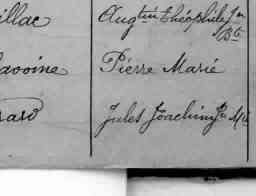 illac Aug^tin Théophile J^n
B^te
avoine Pierre Marié
rard Jules Joachim